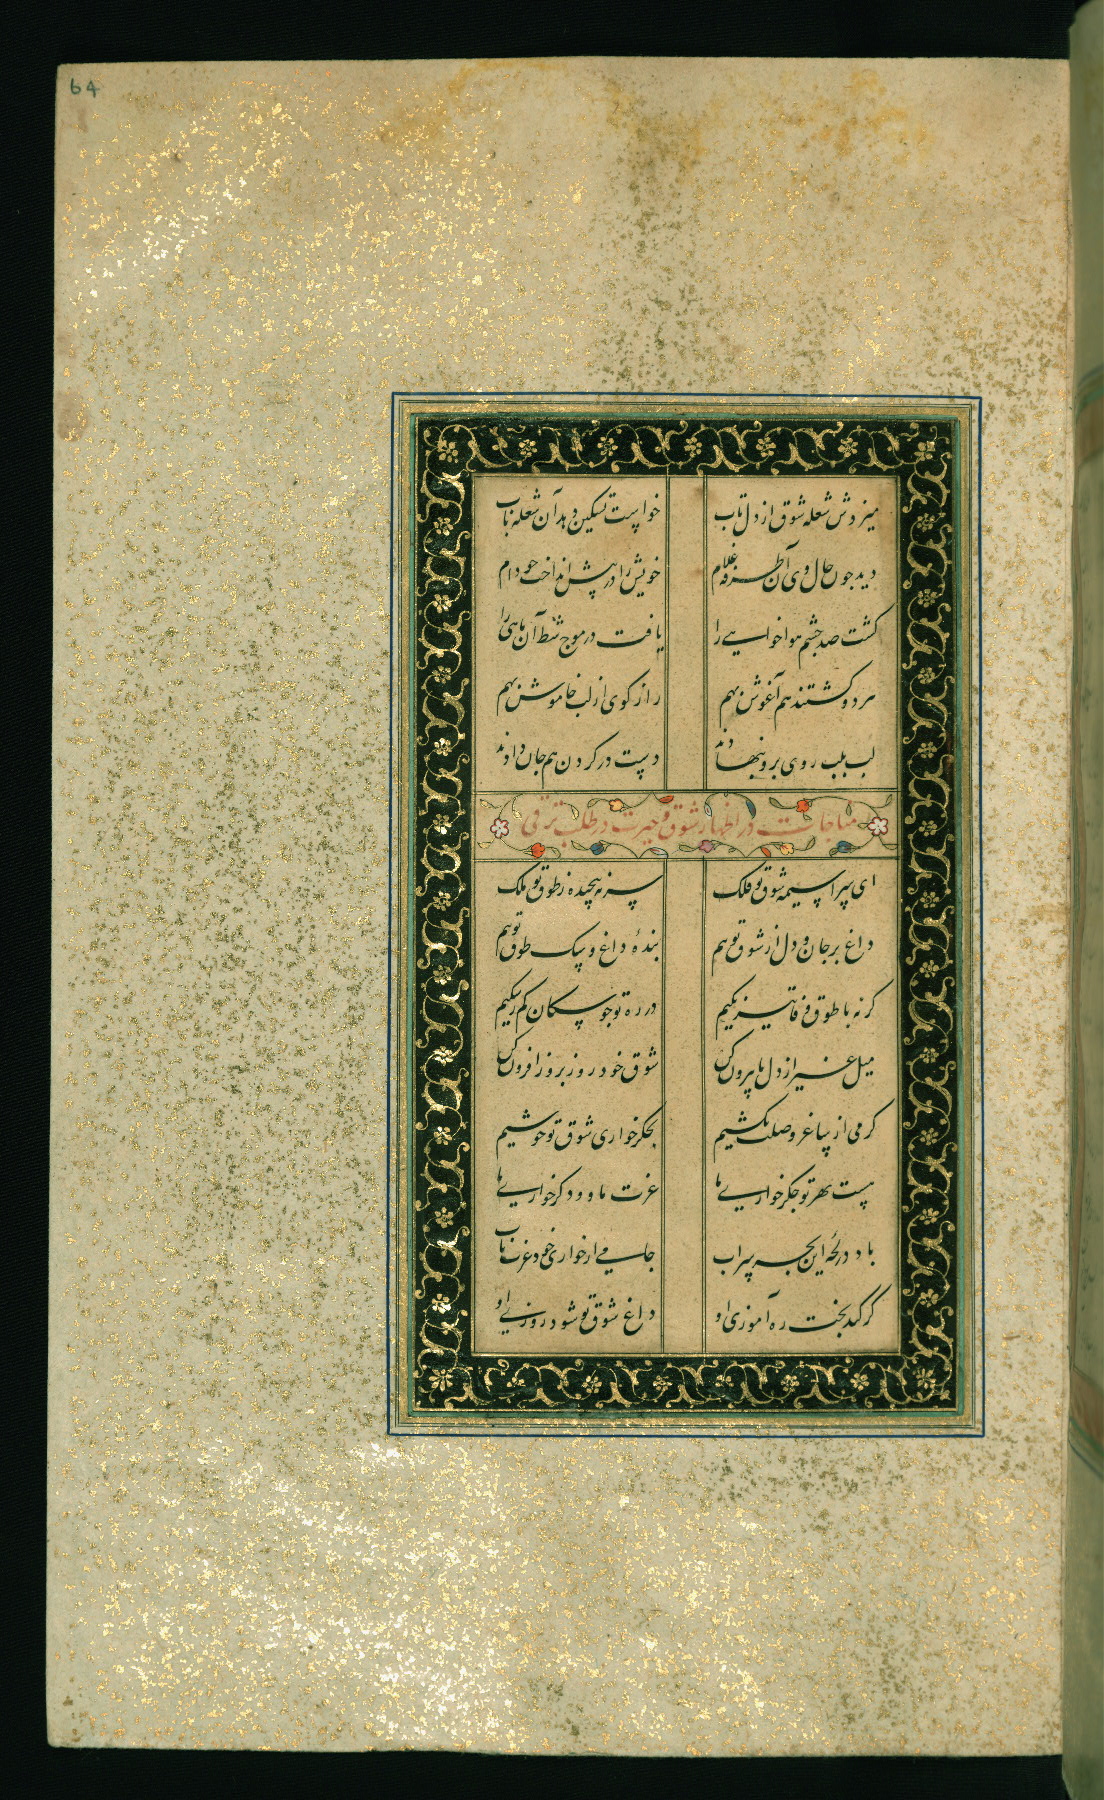 64
میزدش شعله شوق از دل تاب خواست تسکین دهد آن شعله بآب
دید چون حال وی آن طرفه غلام خویش را در پیش انداخت چو دام
کشت صد چشم هواخواهی را یافت در موج شط آن ماهی را
هر دو کشتند هم آغوش بهم راز کوی از لب خاموش بهم
لب بلب روی برو بنهادند دست در کردن هم جان دادند
مناجات در اظهار شوق و حیرت در طلب ترقی
ای سراسیمه شوق تو فلک سر نه پیچیده ز طوق تو ملک
داغ بر جان و دل از شوق توایم بندهٔ داغ و سک طوق توایم
کر نه با طوق وفا تیزتکیم در ره تو چو سکان کم ز سکیم
میل غیر از دل ما بیرون کن شوق خود روز بروز افزون کن
کر می از ساغر وصلت نکشیم بجکرخواری شوق تو خوشیم
هست بهر تو جکرخواریها عزت ما و دکرخواریها
باد در لجهٔ این بحر سراب جامی از خواری خود عزت یاب
کر کند بخت ره آموزی او داغ شوق تو شود روزی او